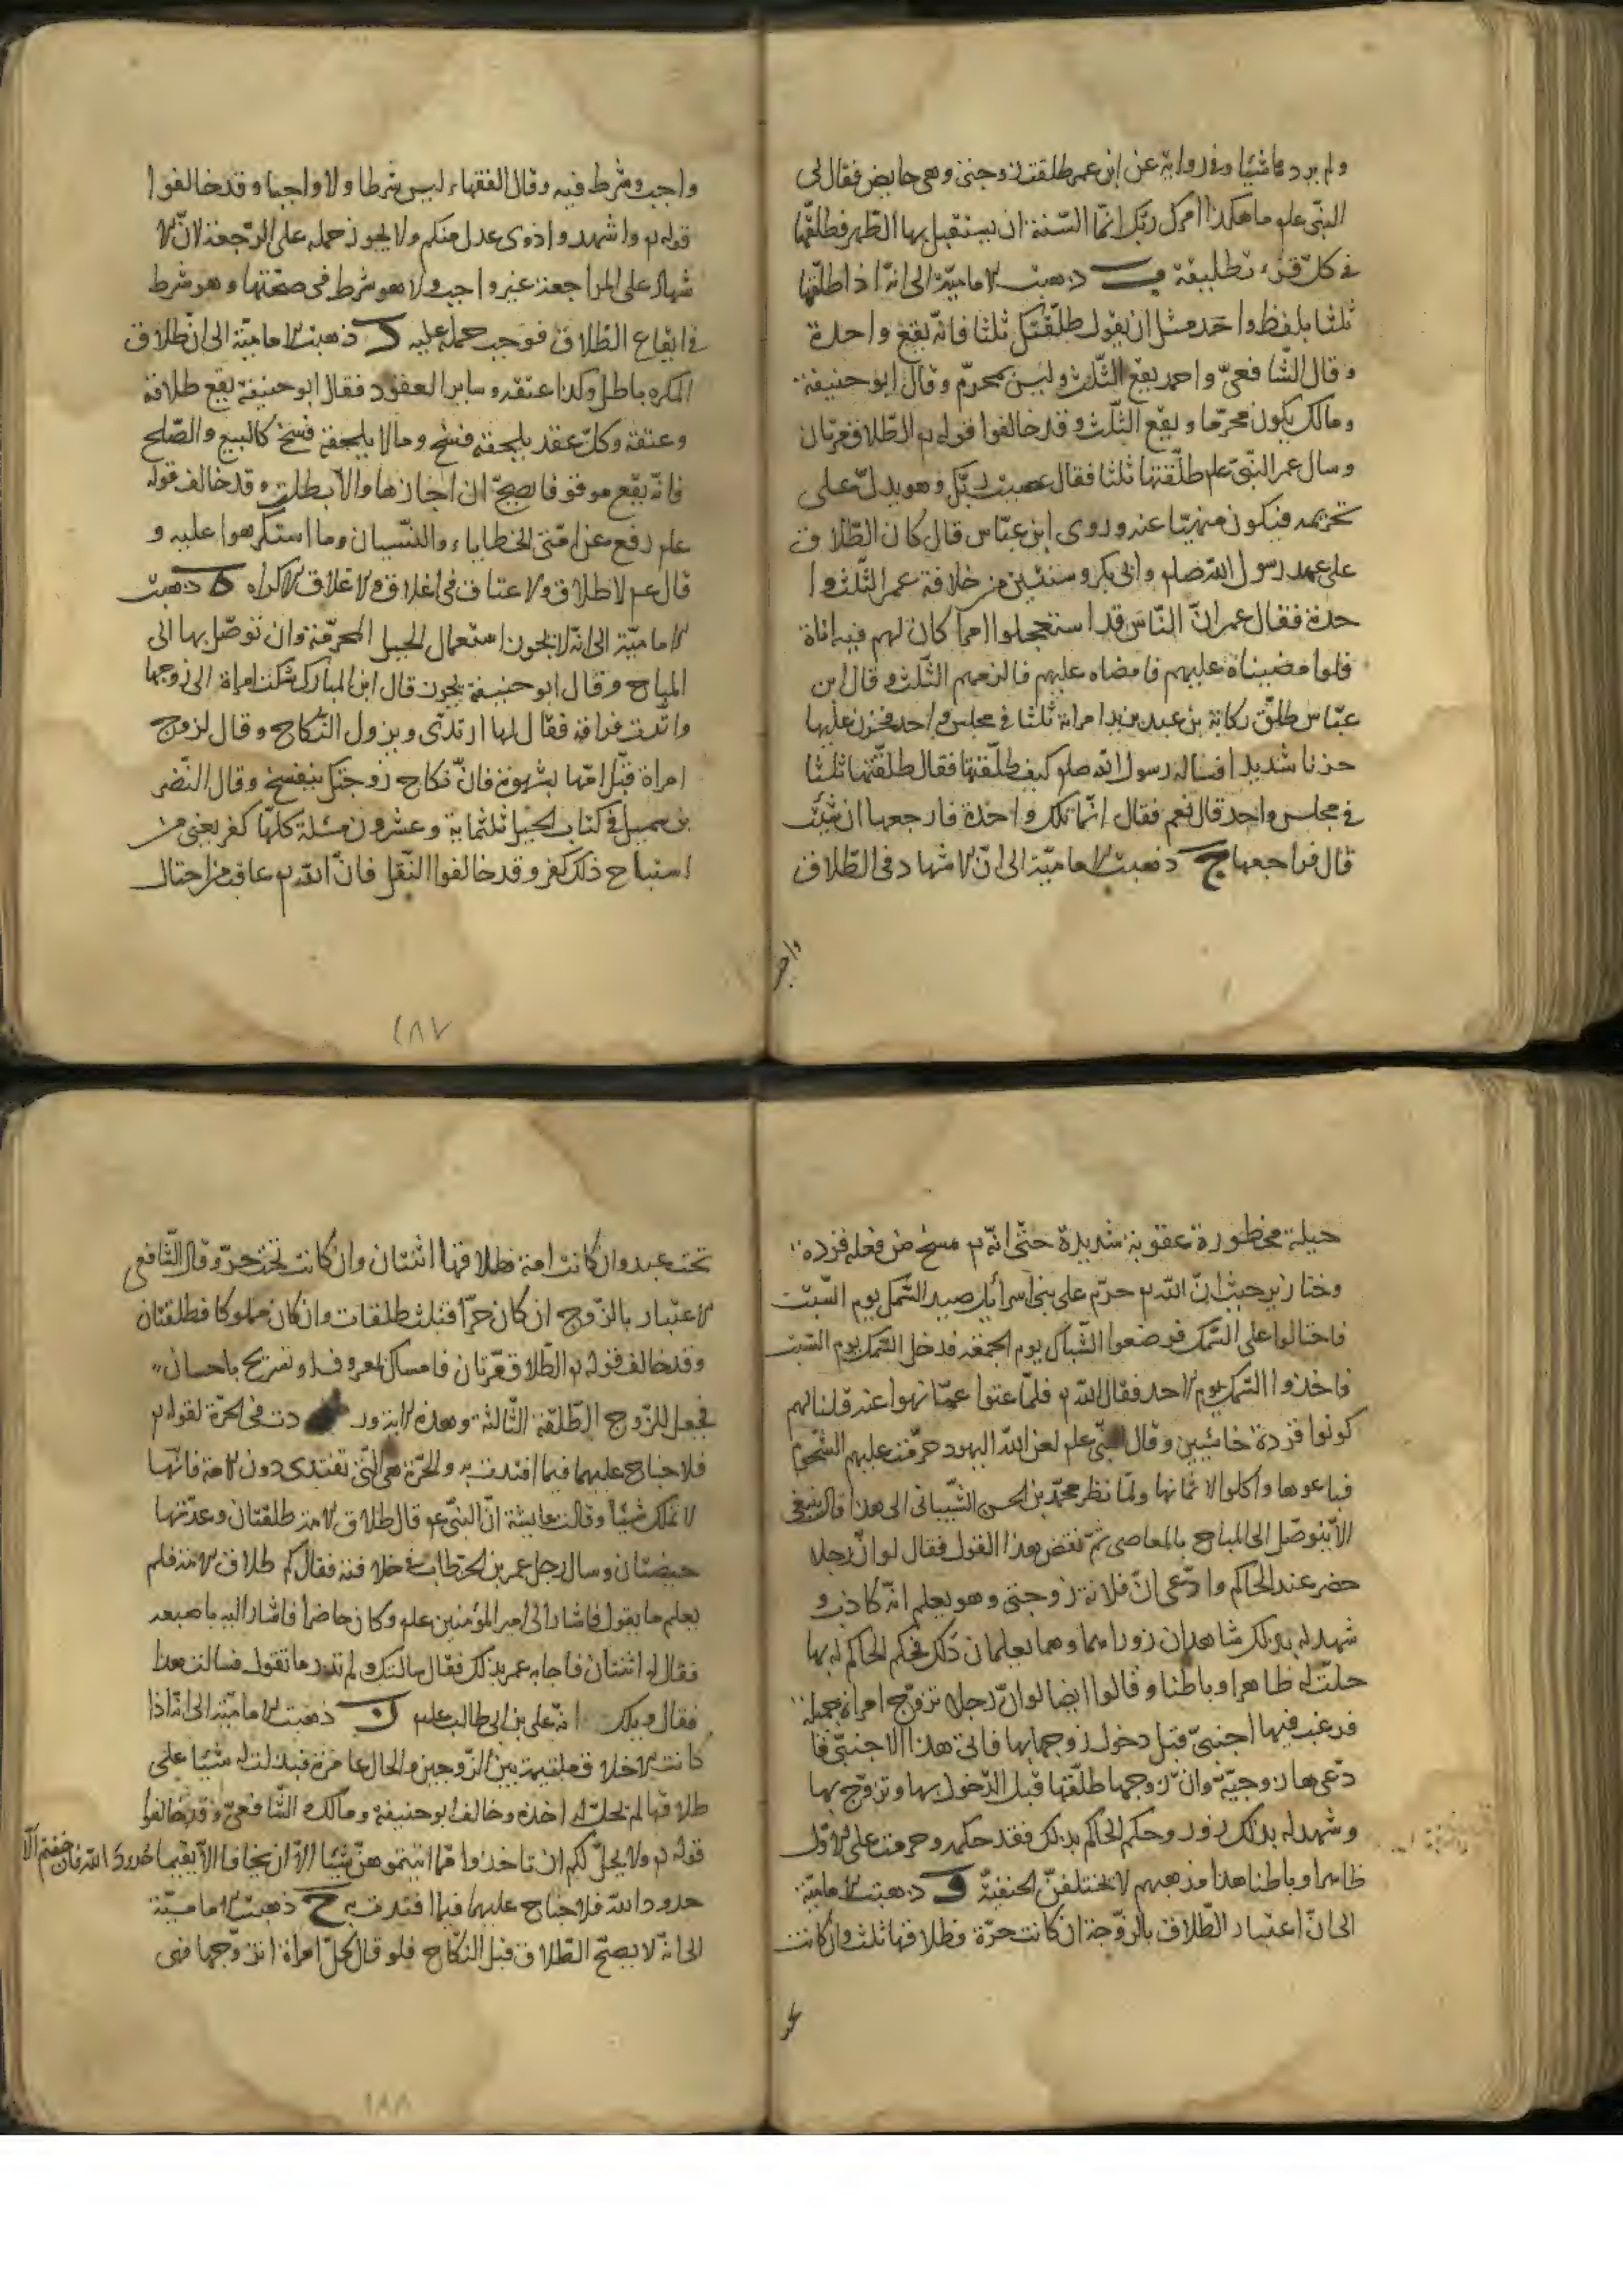 ولم يردها شيئا وفى رواية عن ابن عمر طلقت زوجتى وهى حايض فقال لى
النبى علم ما هكذا امرك ربك انما السنة ان يستقبل بها الطهر فطلقها
فى كل قرء تطليقة ب ذهبت الامامية الى انه اذا طلقها
ثلثا بلفظ واحد مثل ان يقول طلقتك ثلثا فانه يقع واحدة
وقال الشافعى واحمد يقع الثلث وليس بمحرم وقال ابو حنيفة
ومالك يكون محرما ويقع الثلث وقد خالفوا قوله تع الطلاق مرتان
وسال عمر النبى علم طلقتها ثلثا فقال عصيت ربك وهو يدل على
تحريمه فيكون منهيا عنه وروى ابن عباس قال كان الطلاق
على عهد رسول الله صلم وابى بكر وسنتين من خلافة عمر الثلث وا
حدة فقال عمر ان الناس قد استعجلوا امرا كان لهم فيه اناة
فلو امضيناه عليهم فامضاه عليهم فالزمهم الثلث وقال ابن
عباس طلق ركانة بن عبد يزيد امراته ثلثا فى مجلس واحد فحزن عليها
حزنا شديدا فساله رسول الله صلم كيف طلقتها فقال طلقتها ثلثا
فى مجلس واحد قال نعم فقال انما تلك واحدة فارجعها ان شئت
قال فراجعها ج ذهبت الامامية الى ان الاشهاد فى الطلاق
واجب
واجب وشرط فيه وقال الفقهاء ليس شرطا ولا واجبا وقد خالفوا
قوله تع واشهدوا ذوى عدل منكم ولا يجوز حمله على الرجعة لان الا
شهاد على المراجعة غير واجب ولا هو شرط فى صحتها وهو شرط
فى ايقاع الطلاق فوجب حمله عليه د ذهبت الامامية الى ان طلاق
المكره باطل وكذا عتقه وساير العقود فقال ابو حنيفة يقع طلاقه
وعتقه وكل عقد يلحقه فسخ وما لا يلحقه فسخ كالبيع والصلح
فانه يقع موقوفا يصح ان اجازها والا بطلت وقد خالف قوله
علم رفع عن امتى الخطاياء والنسيان وما استكرهوا عليه و
قال عم لا طلاق ولا عتاق فى اغلاق والاغلاق الاكراه ه ذهبت
الامامية الى انه لا يجوز استعمال الحيل المحرمة وان توصل بها الى
المباح وقال ابو حنيفة يجوز قال ابن المبارك شكت امراة الى زوجها
وارادت فراقه فقال لها ارتدى ويزول النكاح وقال لزوج
امراة قبل امها بشهوة فان نكاح زوجتك ينفسخ وقال النضر
بن شميل فى كتاب الحيل ثلثماية وعشرون مسئلة كلها كفر يعنى من
استباح ذلك كفر وقد خالفوا النقل فان الله تع عاقب من احتال
١٨٧
حيلة محظورة عقوبة شديدة حتى انه تع مسخ من فعله قردة
وخنازير حيث ان الله تع حرم على بنى اسرائيل صيد السمك يوم السبت
فاحتالوا على السمك فوضعوا الشباك يوم الجمعة فدخل السمك يوم السبت
فاخذوا السمك يوم الاحد فقال الله تع فلما عتوا عما نهوا عنه قلنا لهم
كونوا قردة خاسئين وقال النبى علم لعن الله اليهود حرمت عليهم الشحوم
فباعوها واكلوا الاثمانها ولما نظر محمد بن الحسن الشيبانى الى هذا قال ينبغى
الا يتوصل الى المباح بالمعاصى ثم نقض هذا القول فقال لو ان رجلا
حضر عند الحاكم وادعى ان فلانة زوجتى وهو يعلم انه كاذب و
شهد له بذلك شاهدان زورا وهما يعلمان ذلك فحكم الحاكم له بها
حلت له ظاهرا وباطنا وقالوا ايضا لو ان رجلا تزوج امراة جميلة
فرغب فيها اجنبى قبل دخول زوجها بها فاتى هذا الاجنبى فا
دعى هذا زوجية وان زوجها طلقها قبل الدخول بها وتزوج بها
وشهد له بذلك زور وحكم الحاكم بذلك فقد حكمه وحرمت على الاول
ظاهرا وباطنا هذا مذهبهم لا يختلف الحنفية و ذهبت الامامية
الى ان اعتبار الطلاق بالزوجة ان كانت حرة فطلاقها ثلث وان كانت
تحت عبد وان كانت امة فطلاقها اثنتان وان كانت تحت حر وقال الشافعى
الاعتبار بالزوج ان كان حرا فثلث طلقات وان كان مملوكا فطلقتان
وقد خالف قوله تع الطلاق مرتان فامساك بمعروف او تسريح باحسان
فجعل للزوج الطلقة الثالثة وهذه الاية ور دت فى الحرة لقوله تع
فلا جناح عليهما فيما افتدت به والحرة هى التى تفتدى دون الامة فانها
لا تملك شيئا وقالت عايشة ان النبى عم قال طلاق الامة طلقتان وعدتها
حيضتان وسال رجل عمر بن الخطاب فى خلافته فقال كم طلاق الامة فلم
يعلم ما يقول فاشار الى امير المؤمنين علم وكان حاضرا فاشار اليه باصبعه
فقال له اثنتان فاجابه عمر بذلك فقال سالتك ولم تدر ما تقول فسالت هذا
فقال ويلك انه على بن ابى طالب علم ز ذهبت الامامية الى انه اذا
كانت الاخلاق ملتئمة بين الزوجين والحال عامرة فبذلت له شيئا على
طلاقها لم يحل له اخذه وخالف ابو حنيفة ومالك والشافعى وقد خالفوا
قوله تع ولا يحل لكم ان تاخذوا مما اتيتموهن شيئا الا ان يخافا الا يقيما حدود الله فان خفتم الا
حدود الله فلا جناح عليهما فيما افتدت به ح ذهبت الامامية
الى انه لا يصح الطلاق قبل النكاح فلو قال كل امراة اتزوجها فهى
١٨٨